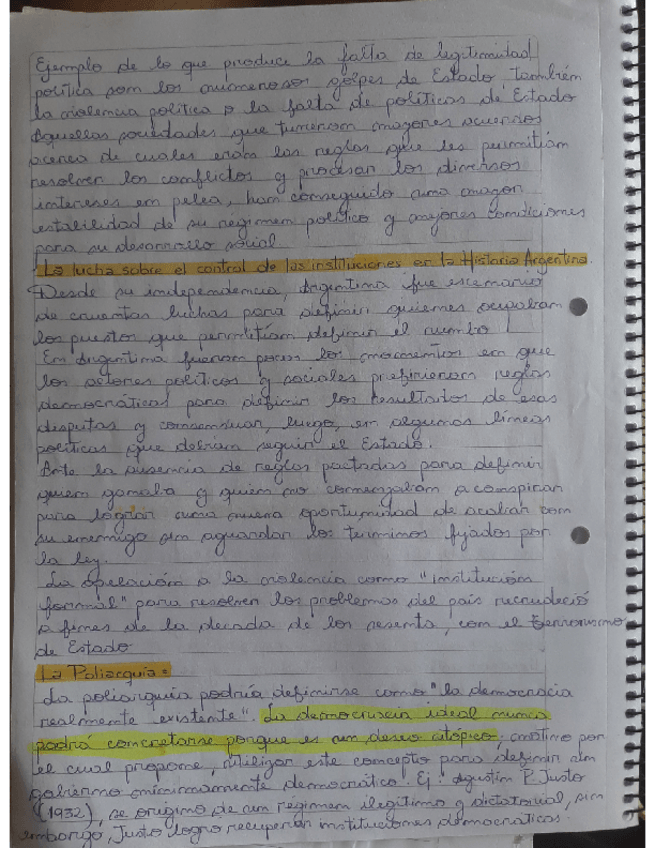 Ejemplo de lo que produce la falta de legitimidad
política son los numerosos golpes de Estado también
la violencia política o la falta de políticas de Estado
Aquellas sociedades que tuvieron mayores acuerdos
acerca de cuales eran las reglas que les permitían
resolver los conflictos y procesar los diversos
intereses en pelea, han conseguido una mayor
estabilidad de su régimen político y mejores condiciones
para su desarrollo social
La lucha sobre el control de las instituciones en la Historia Argentina.
Desde su independencia, Argentina fue escenario
de cruentas luchas para definir quienes ocupaban
los puestos que permitían definir el rumbo
En Argentina fueron pocos los momentos en que
los actores políticos y sociales prefirieron reglas
democráticas para definir los resultados de esas
disputas y consensuar, luego, en algunas líneas
políticas que debían seguir el Estado.
Ante la ausencia de reglas pactadas para definir
quien ganaba y quien no comenzaban a conspirar
para lograr una nueva oportunidad de acabar con
su enemigo sin aguardar los terminos fijados por
la ley.
La apelación a la violencia como "institución
formal" para resolver los problemas del país recrudeció
a fines de la decada de los sesenta, con el terrorismo
de Estado
La Poliarquía:
La poliarquía podría definirse como "la democracia
realmente existente". La democracia ideal nunca
podrá concretarse porque es un deseo utópico, motivo por
el cual propone, utilizar este concepto para definir un
gobierno minimamente democrático. Ej: Agustín P. Justo
(1932), se origino de un régimen ilegítimo y dictatorial, sin
embargo, Justo logro recuperar instituciones democráticas.